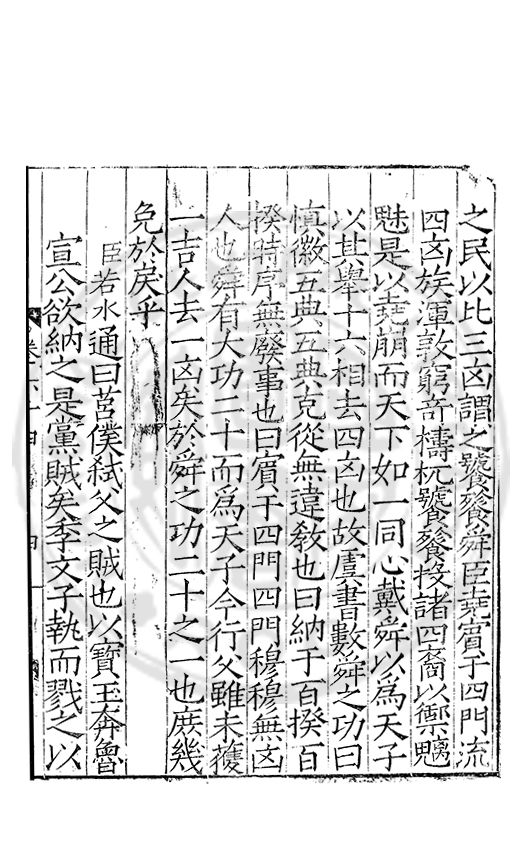 之民以比三凶謂之饕餮舜臣堯賓于四門流
四凶族渾敦窮奇檮杌饕餮投諸四裔以禦魑
魅是以堯崩而天下如一同心戴舜以為天子
以其舉十六相去四凶也故虞書數舜之功曰
慎徽五典五典克從無違教也曰納于百揆百
揆時序無廢事也曰賓于四門四門穆穆無凶
人也舜有大功二十而為天子今行父雖未獲
一吉人去一凶矣於舜之功二十之一也庶幾
免於戾乎
臣若水通曰莒僕弒父之賊也以寶玉奔魯
宣公欲納之是黨賊矣季文子執而戮之以